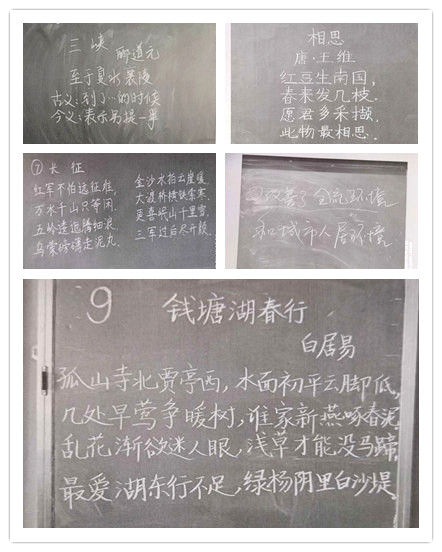 三峡 郦道元
至于夏水襄陵
古义:到了…的时候
今义:表示另提一事
相思
唐·王维
红豆生南国,
春来发几枝.
愿君多采撷,
此物最相思.
⑦ 长征
红军不怕远征难,
万水千山只等闲.
五岭逶迤腾细浪,
乌蒙磅礴走泥丸.
金沙水拍云崖暖,
大渡桥横铁索寒.
更喜岷山千里雪,
三军过后尽开颜.
改善了 环境
和城市人居环境.
9 钱塘湖春行
白居易
孤山寺北贾亭西,水面初平云脚低,
几处早莺争暖树,谁家新燕啄春泥
乱花渐欲迷人眼,浅草才能没马蹄
最爱湖东行不足,绿杨阴里白沙堤.